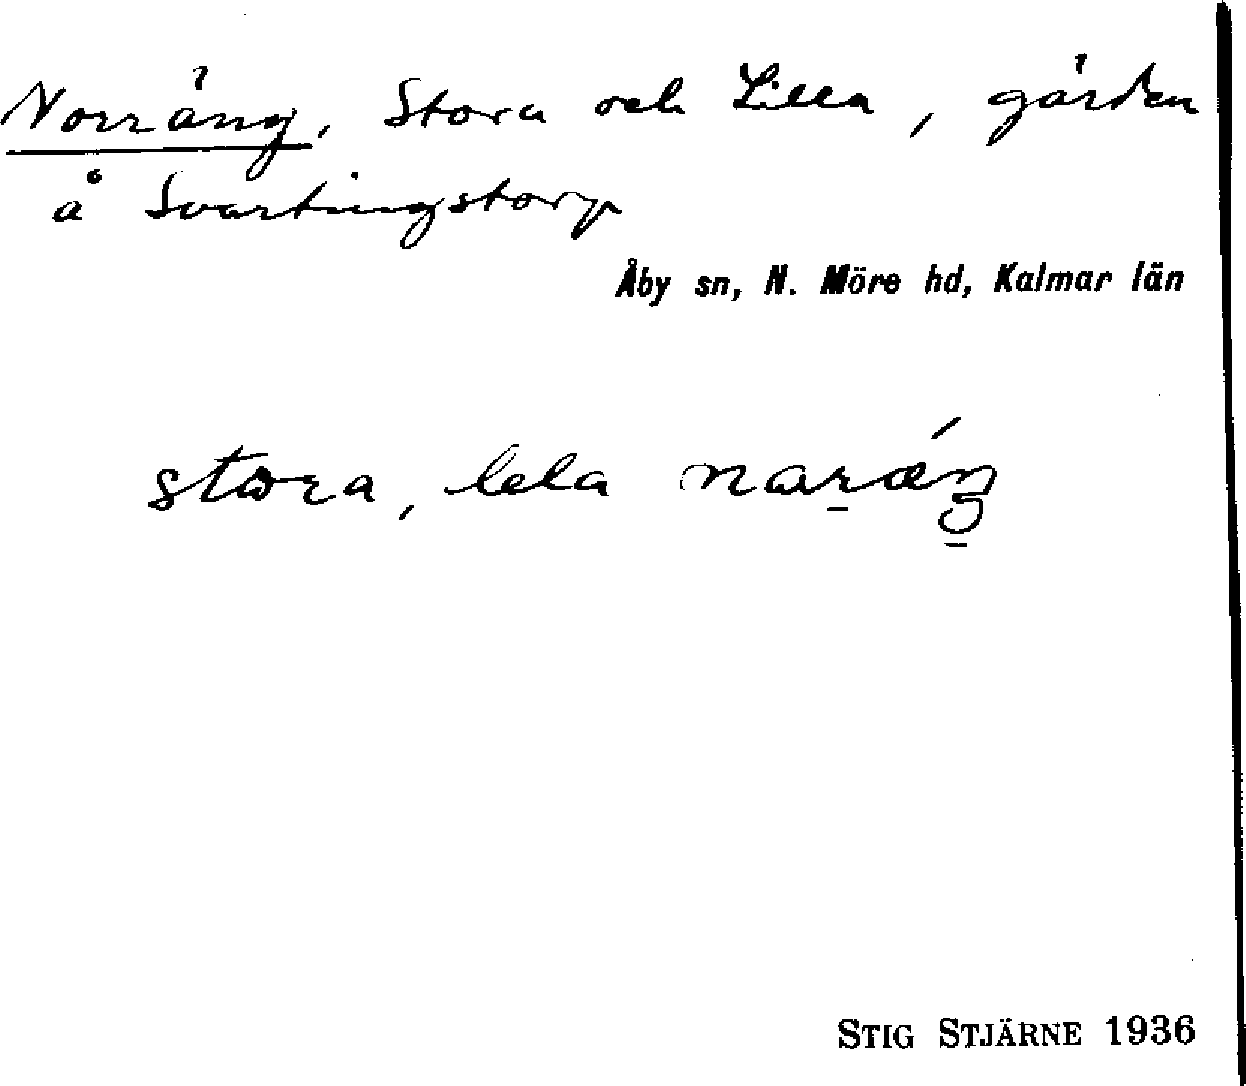 Norräng, Stora och Lilla, gärden
å Svartingstorp
Åby sn, N. Möre hd, Kalmar län
stωra, lela
STIG STJÄRNE 1936